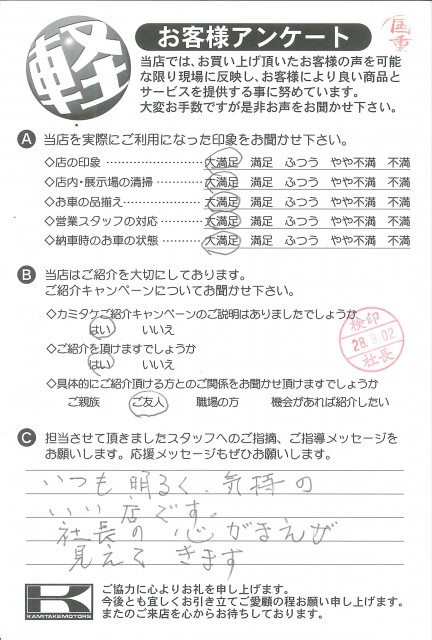 国重
軽
お客様アンケート
当店では、お買い上げ頂いたお客様の声を可能
な限り現場に反映し、お客様により良い商品と
サービスを提供する事に努めています。
大変お手数ですが是非お声をお聞かせ下さい。
A 当店を実際にご利用になった印象をお聞かせ下さい。
◇店の印象 ‥‥‥‥‥‥‥‥ 大満足 満足 ふつう やや不満 不満
◇店内・展示場の清掃‥‥‥‥ 大満足 満足 ふつう やや不満 不満
◇お車の品揃え‥‥‥‥‥‥‥ 大満足 満足 ふつう やや不満 不満
◇営業スタッフの対応‥‥‥‥ 大満足 満足 ふつう やや不満 不満
◇納車時のお車の状態‥‥‥‥ 大満足 満足 ふつう やや不満 不満
B 当店はご紹介を大切にしております。
ご紹介キャンペーンについてお聞かせ下さい。
◇カミタケご紹介キャンペーンのご説明はありましたでしょうか
はい いいえ
◇ご紹介を頂けますでしょうか
はい いいえ
◇具体的にご紹介頂ける方とのご関係をお聞かせ頂けますでしょうか
ご親族 ご友人 職場の方 機会があれば紹介したい
検印
28.9.02
社長
C 担当させて頂きましたスタッフへのご指摘、ご指導メッセージを
お願いします。応援メッセージもぜひお願いします。
いつも明るく気持の
いい店です。
社長の心がまえが
見えてきます
KAMITAKEMOTORS
ご協力に心よりお礼を申し上げます。
今後とも宜しくお引き立てご愛顧の程お願い申し上げます。
またのご来店を心からお待ちしております。